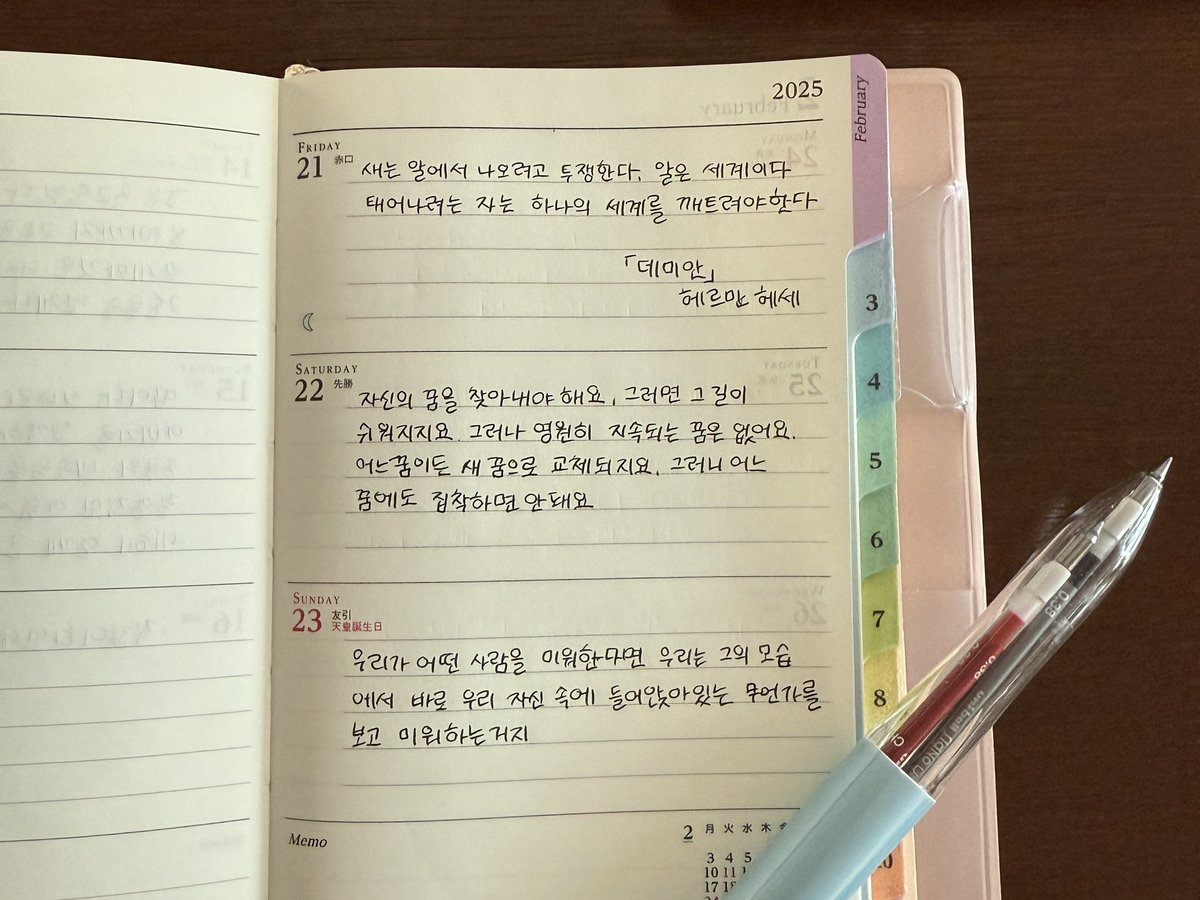 2025
February
FRIDAY
21 赤口
새는 알에서 나오려고 투쟁한다. 알은 세계이다
태어나려는 자는 하나의 세계를 깨트려야한다
「데미안」
헤르만 헤세
SATURDAY
22 先勝
자신의 꿈을 찾아내야 해요. 그러면 그 길이
쉬워지지요. 그러나 영원히 지속되는 꿈은 없어요.
어느꿈이든 새 꿈으로 교체되지요. 그러니 어느
꿈에도 집착하면 안돼요
SUNDAY
23 友引
天皇誕生日
우리가 어떤 사람을 미워한다면 우리는 그의 모습
에서 바로 우리 자신 속에 들어앉아있는 무언가를
보고 미워하는거지
Memo
2 月 火 水 木
3 4 5
10 11
17
3
4
5
6
7
8
10
0.38
0.38